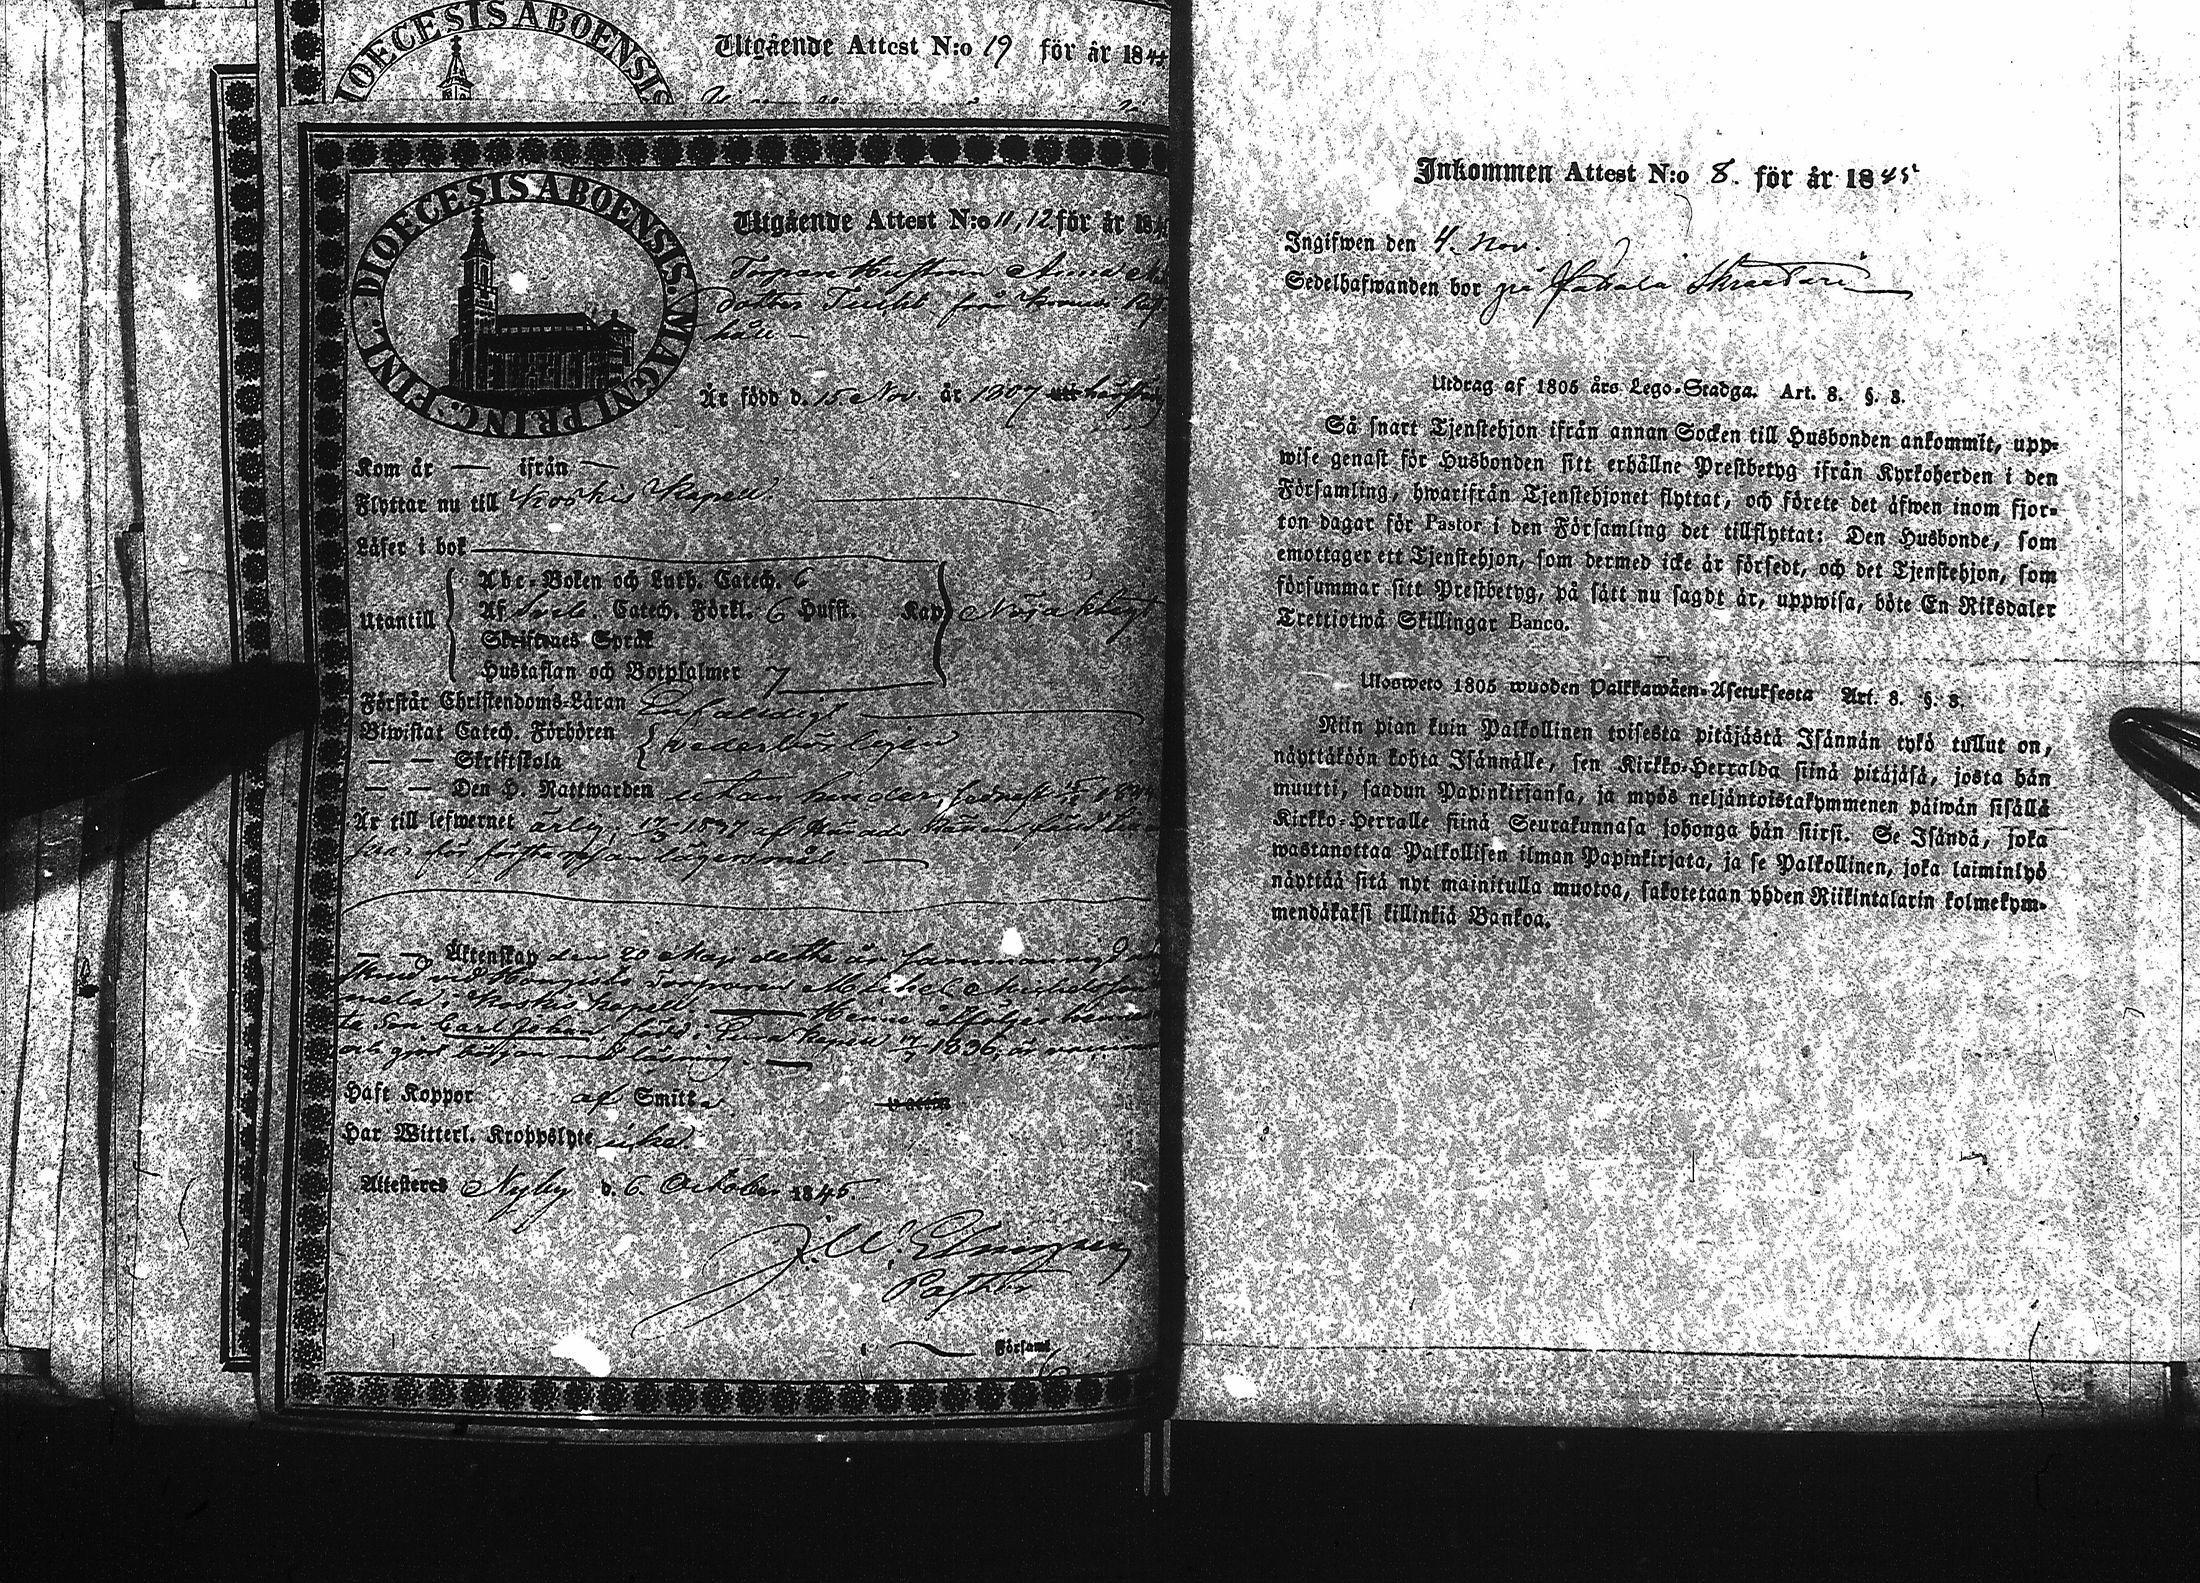 DIOECESIS ABOENSIS
Utgående Attest N:o 19 för år 1844
FINL. DIOECESIS ABOENSIS. MAGNI PRINC:
Utgående Attest N:o 11, 12 för år 184
Torpare Hustrun Anna
dotter från
håll —
Är född d. 15. Nov. år 1807
Kom år — ifrån —
Flyttar nu till Koskis Kapell.
Läser i bok
Abc-Boken och Luth. Catech. 6
Utantill Af Sveb. Catech. Förkl. 6 Husst. Kap Nöjaktigt
Skriftenes Språk
Hustaflan och Botpsalmer 7
Förstår Christendoms-Läran Enfaldigt
Biwistat Catech. Förhören vederbörligen
— — Skriftskola
— — Den H. Nattwarden utan hinder sednast
Är till lefwernet ärlig, 1837 af Härads Rätten fäld
för första resan lägersmål —
— — Äktenskap den 20 Maji detta år sammanvigd
med Torparen Michel Michelsson
i Koskis Kapell. — Henne åtföljer
Son Carl Johan, född i Kapell 1836, är
och gjort början med läsning. —
Haft Koppor af Smitt.
Har Witterl. Kroppslyte icke.
Attesteres Nyby d. 6. October 1845
Pastor
i — Församl.
Inkommen Attest N:o 8. för år 1845
Ingifwen den 4. Nov.
Sedelhafwanden bor på
Utdrag af 1805 års Lego-Stadga. Art. 8. §. 8.
Så snart Tjenstehjon ifrån annan Socken till Husbonden ankommit, upp-
wise genast för Husbonden sitt erhållne Prestbetyg ifrån Kyrkoherden i den
Församling, hwarifrån Tjenstehjonet flyttat, och förete det äfwen inom fjor-
ton dagar för Pastor i den Församling det tillflyttat: Den Husbonde, som
emottager ett Tjenstehjon, som dermed icke är försedt, och det Tjenstehjon, som
försummar sitt Prestbetyg, på sätt nu sagdt är, uppwisa, böte En Riksdaler
Trettiotwå Skillingar Banco.
Ulosweto 1805 wuoden Palkkawäen-Asetuksesta Art. 8. §. 8.
Niin pian kuin Palkollinen toisesta pitäjästä Isännän tykö tullut on,
näyttäköön kohta Isännälle, sen Kirkko-Herralda siinä pitäjäsä, josta hän
muutti, saadun Papinkirjansa, ja myös neljäntoistakymmenen päiwän sisällä
Kirkko-Herralle siinä Seurakunnasa johonga hän siirsi. Se Isändä, joka
wastanottaa Palkollisen ilman Papinkirjata, ja se Palkollinen, joka laiminlyö
näyttää sitä nyt mainitulla muotoa, sakotetaan yhden Riikintalarin kolmekym-
mendäkaksi killinkiä Bankoa.